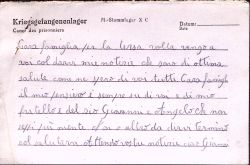 Kriegsgefangenenlager M.-Stammlager X C Datum:
Camp des prisonniers Date
Cara famiglia per la terza volta vengo a
voi col darvi mie notizie che sono di ottima
salute come ne spero di voi tutti Cara famiglia
il mio pensiero è sempre su di voi e di mio
fratello e del zio Giovanni e Angelo che non
mente non o altro da dirvi termino
col salutarvi vostre notizie ciao Giovanni